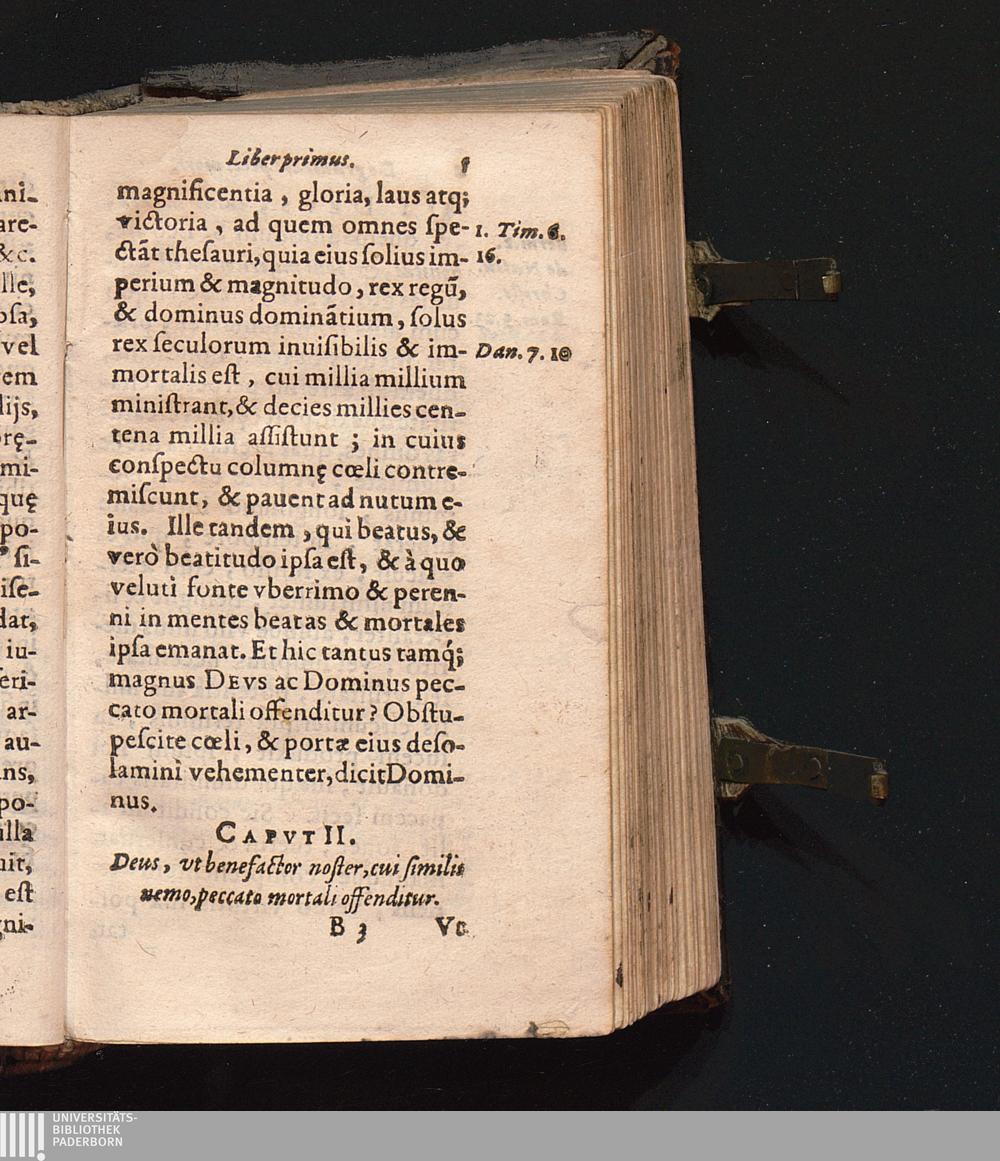 Liber primus. 5
magnificentia, gloria, laus atq;
victoria, ad quem omnes ſpe-
ctãt theſauri, quia eius ſolius im-
perium & magnitudo, rex regũ,
& dominus dominãtium, ſolus
rex ſeculorum inuiſibilis & im-
mortalis eſt, cui millia millium
miniſtrant, & decies millies cen-
tena millia aſſiſtunt; in cuius
conſpectu columnę cœli contre-
miſcunt, & pauent ad nutum e-
ius. Ille tandem, qui beatus, &
verò beatitudo ipſa eſt, & à quo
veluti fonte vberrimo & peren-
ni in mentes beatas & mortales
ipſa emanat. Et hic tantus tamq́;
magnus DEVS ac Dominus pec-
cato mortali offenditur? Obſtu-
peſcite cœli, & portæ eius deſo-
lamini vehementer, dicit Domi-
nus.
CAPVT II.
Deus, vt benefactor noſter, cui ſimilis
nemo, peccato mortali offenditur.
B 3 Vt
1. Tim. 6.
16.
Dan. 7. 10
ni-
are-
&c.
lle,
oſa,
vel
rem
lijs,
prę-
mi-
quę
po-
ſi-
iſe-
dat,
iu-
feri-
ar-
au-
ns,
po-
illa
uit,
eſt
gni-
UNIVERSITÄTS-
BIBLIOTHEK
PADERBORN